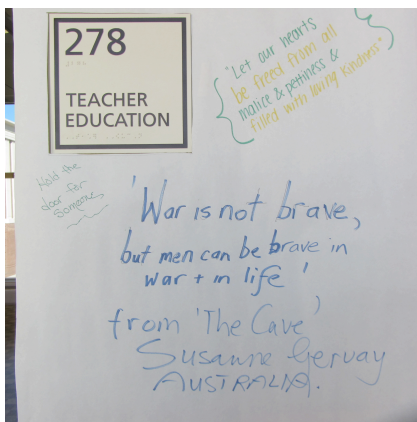 278
TEACHER
EDUCATION
"Let our hearts
be freed from all
malice & pettiness &
filled with loving kindness"
Hold the
door for
someone
'War is not brave,
but men can be brave in
war + in life'
from 'The Cave'
Susanne Gervay
AUSTRALIA.